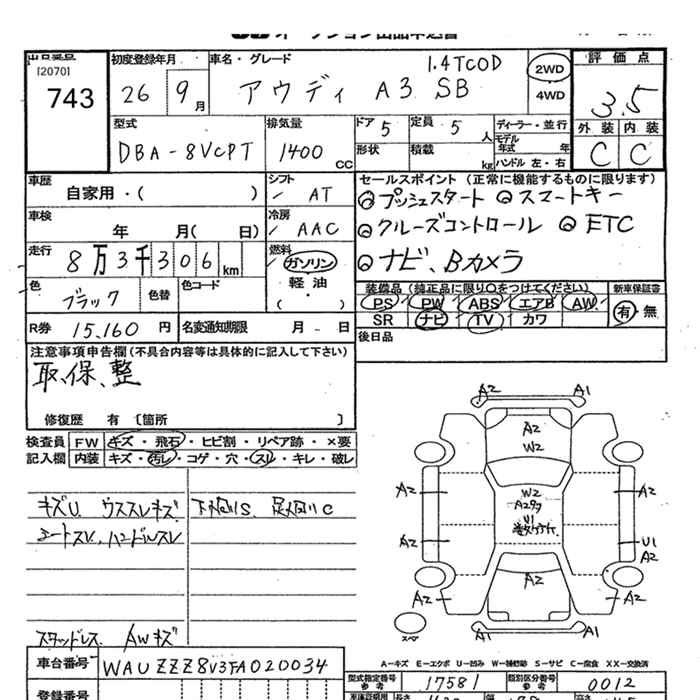 オークション出品申込書
出品番号 初度登録年月 車名・グレード 1.4TCOD 2WD 評価点
[2070] 743 26 9月 アウディ A3 SB 4WD 3.5
型式 排気量 ドア 5 定員 5人 ディーラー・並行 外装 内装
DBA-8VCPT 1400cc 形状 積載 kg モデル年式 年 ハンドル 左・右 C C
車歴 シフト セールスポイント (正常に機能するものに限ります)
自家用・( ) AT ◎プッシュスタート ◎スマートキー
車検 冷房 ◎クルーズコントロール ◎ETC
年 月( 日) AAC
走行 燃料 ◎ナビ、Bカメラ
8万3千306km ガソリン
色 色替 色コード 軽・油 装備品 (純正品に限り○をつけてください) 新車保証書
ブラック ( ・ ) PS PW ABS エアB AW 有・無
R券 15,160円 名変通知期限 月 - 日 SR ナビ TV カワ
注意事項申告欄(不具合内容等は具体的に記入して下さい) 後日品
取、保、整
修復歴 有 〔箇所 〕
検査員 FW キズ・飛石・ヒビ割・リペア跡・×要
記入欄 内装 キズ・汚レ・コゲ・穴・スレ・キレ・破レ
キズU ウススレキズ 下廻りS、足廻りC
シートスレ、ハンドルスレ
スタッドレス AWキズ
A2 A1
A2
W2
A2 W2 A2
A2
U1
A2 U1
A2
A2
A2 A2
スペ
A1 A1
A-キズ E-エクボ U-凹み W-補修跡 S-サビ C-腐食 XX-交換済
車台番号 WAUZZZ8V3FA020034 型式指定番号 参考 17581 類別区分番号 参考 0012
登録番号 車検証用 参考 長さ 幅 高さ